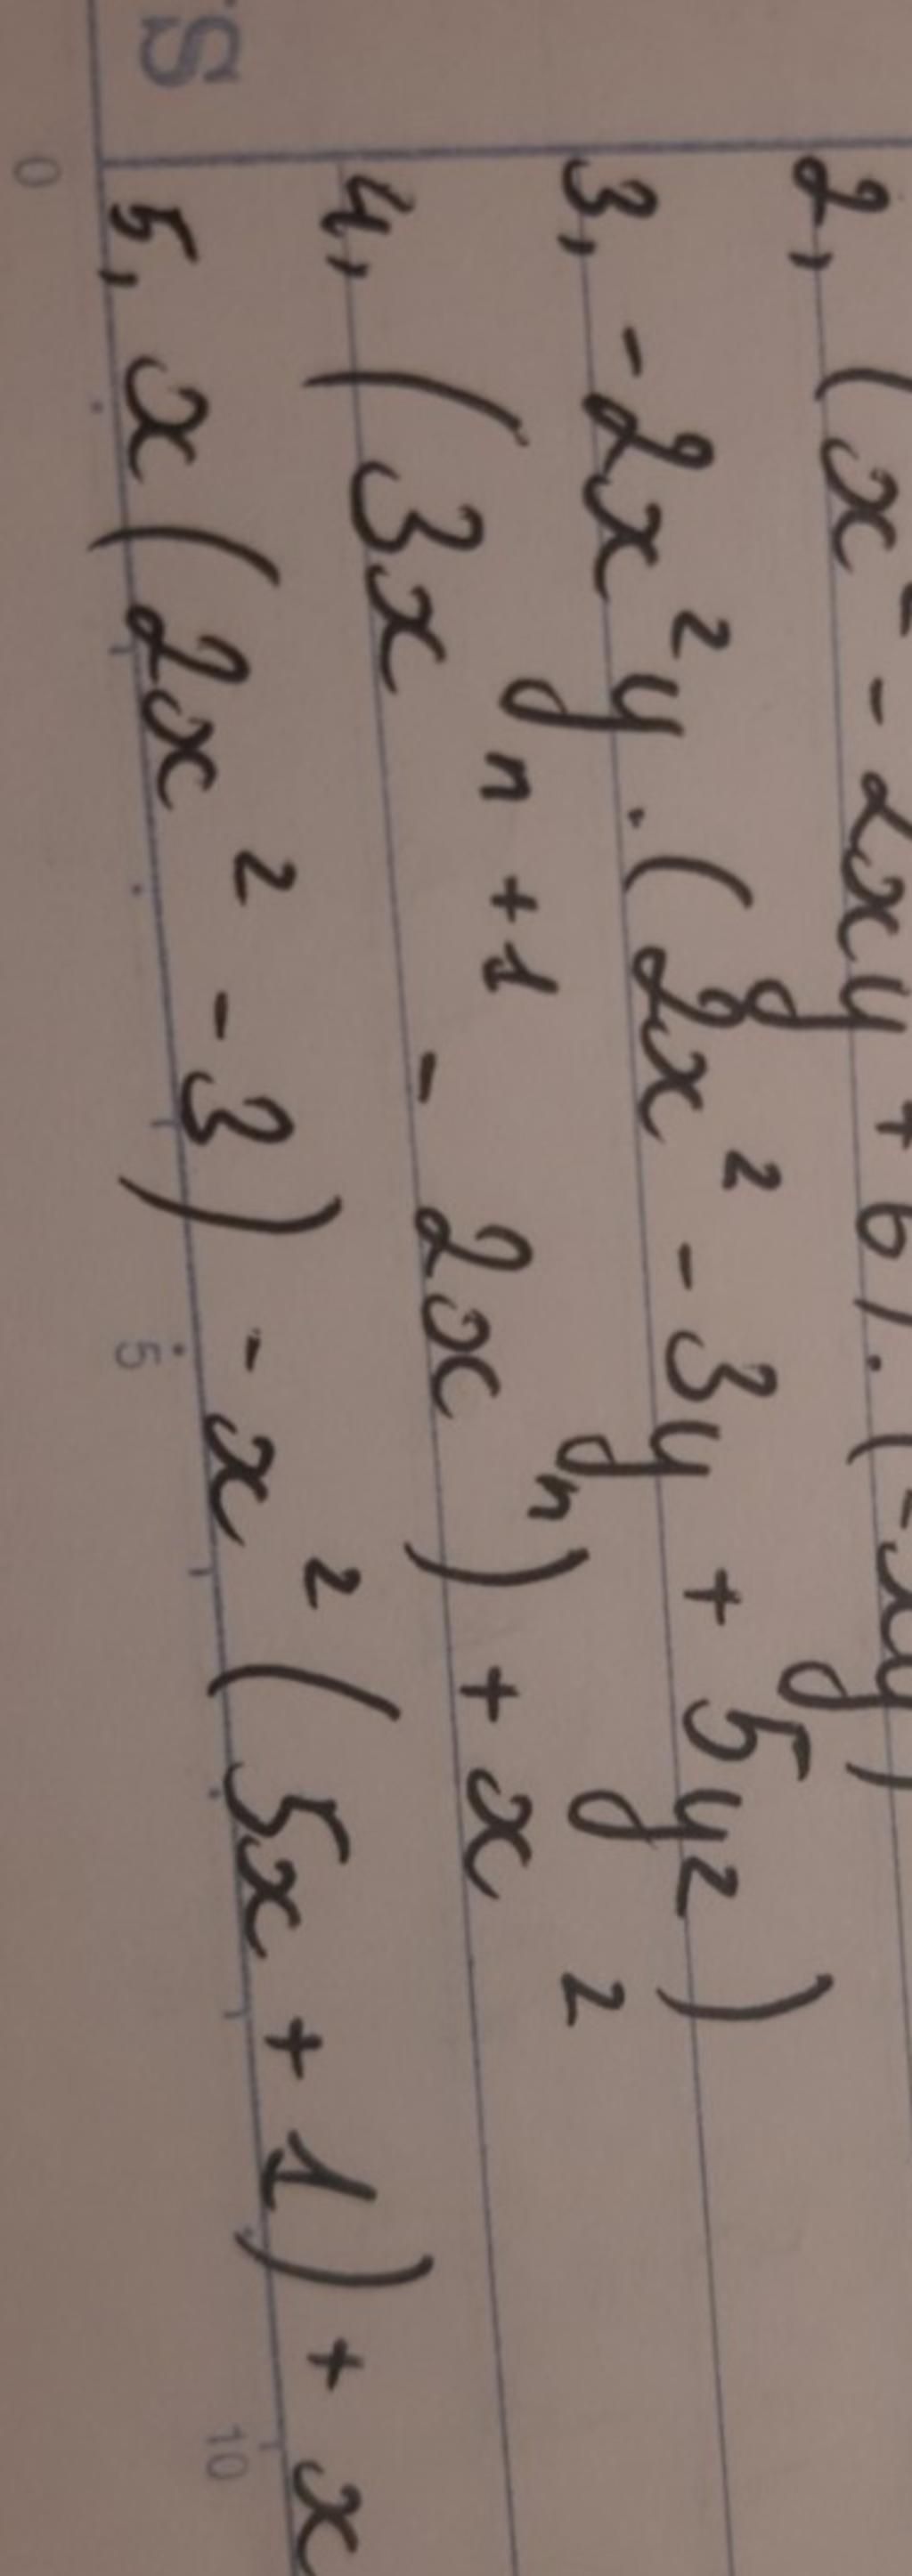 2, (x² - 2xy + 6). (-xy)
3, -2x²y . (2x² - 3y + 5y²)
4, (3xⁿ⁺¹ - 2xⁿ) + x²
5, x(2x² - 3) - x²(5x + 1) + x
S
0 5 10